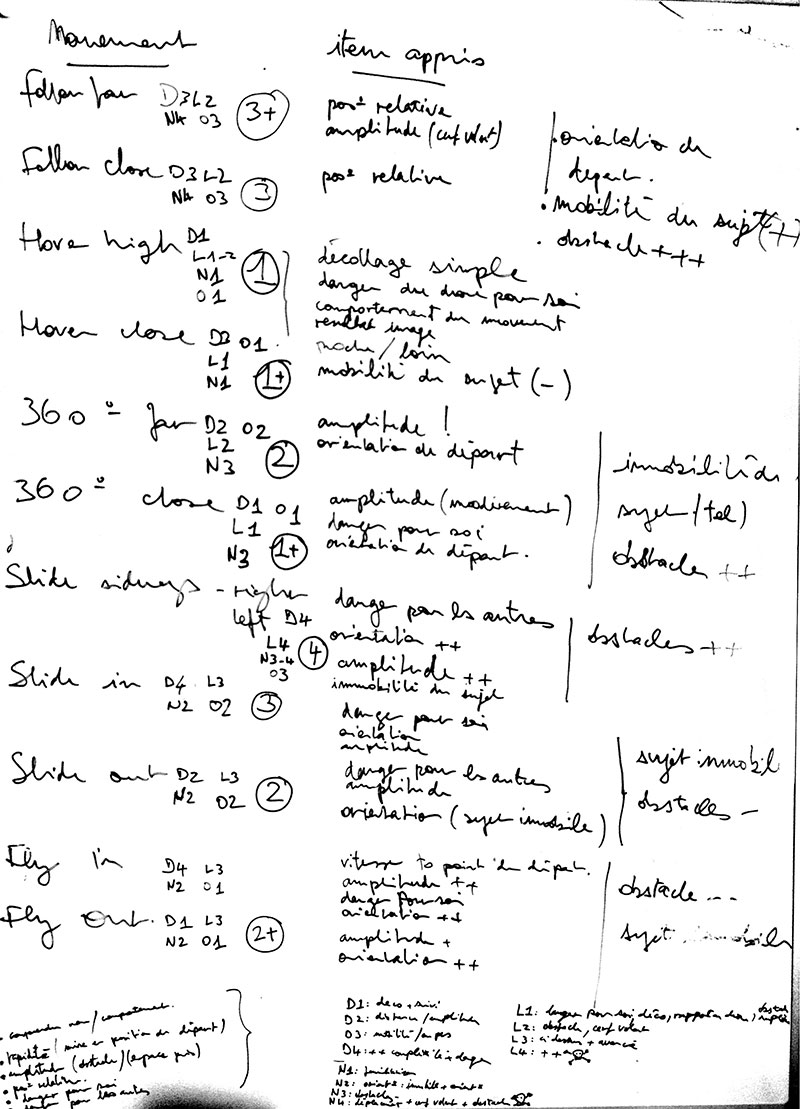 Movement
item appris
Follow far D3 L2
N4 O3 3+
pos° relative
amplitude (cerf volant)
Follow close D3 L2
N4 O3 3
pos° relative
orientation de
départ.
mobilité du sujet (++)
obstacle +++
Hover high D1
L1-2
N1
O1
1
décollage simple
danger du drone pour soi
comportement du movement
resultat image
Hover close D3 O1
L1
N1 1+
proche / loin
mobilité du sujet (-)
360° far D2 O2
L2
N3 2
amplitude !
orientation de départ
360° close D1 O1
L1
N3 1+
amplitude (modérément)
danger pour soi
orientation de départ.
immobilité du
sujet (tel)
obstacles ++
Slide sideways - right
left D4
L4
N3-4
O3
4
danger pour les autres
orientation ++
amplitude ++
immobilité du sujet
obstacles ++
Slide in D4 L3
N2 O2 3
danger pour soi
orientation
amplitude
Slide out D2 L3
N2 O2 2
danger pour les autres
amplitude
orientation (sujet immobile)
sujet immobil
obstacles -
Fly in D4 L3
N2 O1
vitesse to point de départ.
amplitude ++
danger pour soi
orientation ++
Fly out. D1 L3
N2 O1 2+
amplitude +
orientation ++
obstacle ---
sujet immobile
comprendre / comportement.
(mise en position de départ)
amplitude (obstacle) (espace pris)
pos° relative
danger pour soi
danger pour les autres
D1: deco + suivi
D2: distance / amplitude
D3: mobilité
D4: ++ complexité danger
N1:
N2: orient° : immobile + orient°
N3: obstacles
N4: déplacement + cerf volant + obstacle
L1: danger pour soi, déco,
L2: obstacle, cerf volant
L3:
L4: ++